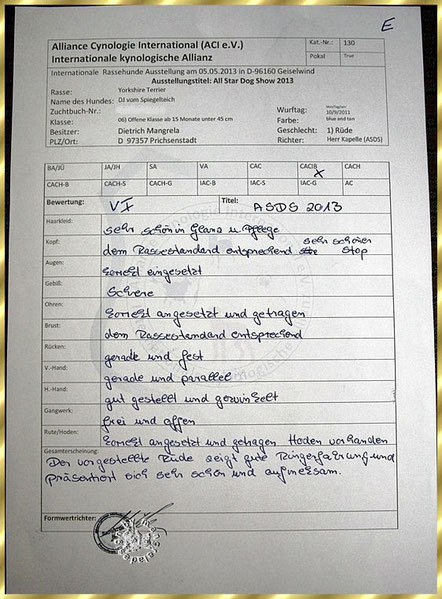 E
Alliance Cynologie International (ACI e.V.)
Internationale kynologische Allianz
Kat.-Nr.: 130
Pokal True
Internationale Rassehunde Ausstellung am 05.05.2013 in D-96160 Geiselwind
Ausstellungstitel: All Star Dog Show 2013
Rasse: Yorkshire Terrier
Name des Hundes: DJ vom Spiegelteich
Zuchtbuch-Nr.: Wurftag: 10/9/2011
Klasse: (06) Offene Klasse ab 15 Monate unter 45 cm Farbe: blue and tan
Besitzer: Dietrich Mangrela Geschlecht: 1) Rüde
PLZ/Ort: D-97357 Prichsenstadt Richter: Herr Kapelle (ASDS)
BA/JÜ JA/JH SA VA CAC CACIB X CACH
CACH-B CACH-S CACH-G IAC-B IAC-S IAC-G AC
Bewertung: V1 Titel: ASDS 2013
Haarkleid: sehr schön in Glanz u. Pflege
Kopf: dem Rassestandard entsprechend sehr schöner Stop
Augen: korrekt eingesetzt
Gebiß: Schere
Ohren: korrekt angesetzt und getragen
Brust: dem Rassestandard entsprechend
Rücken: gerade und fest
V.-Hand: gerade und parallel
H.-Hand: gut gestellt und gewinkelt
Gangwerk: frei und offen
Rute/Hoden: korrekt angesetzt und getragen Hoden vorhanden
Gesamterscheinung:
Der vorgestellte Rüde zeigt gute Ringerfahrung und
präsentiert sich sehr schön und aufmerksam.
Formwertrichter: